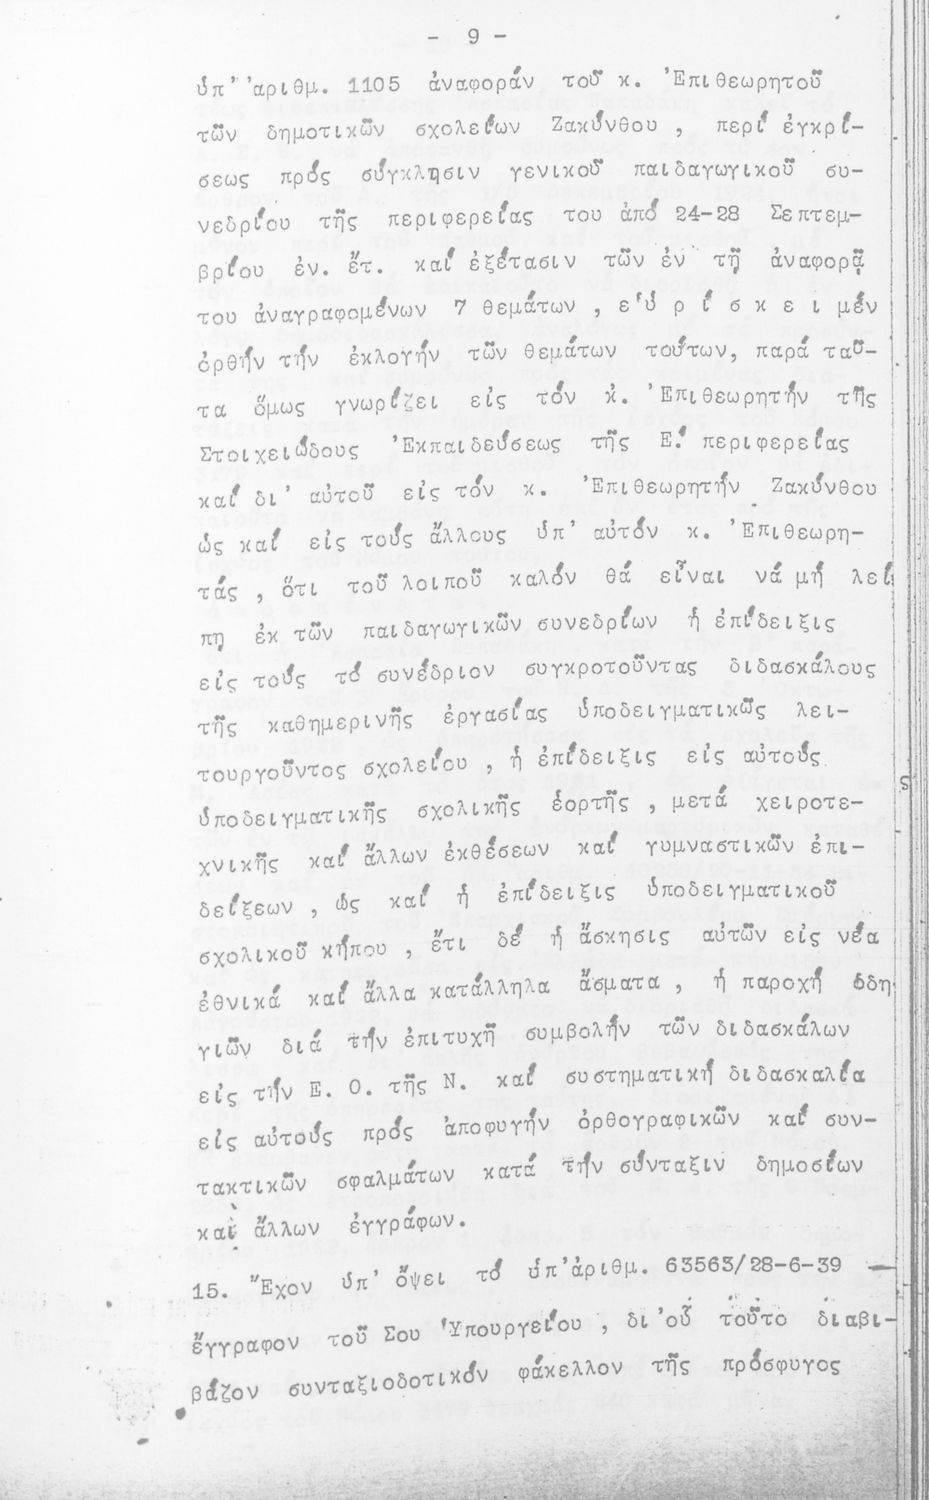 - 9 -
ὑπ' ἀριθμ. 1105 ἀναφοράν τοῦ κ. Ἐπιθεωρητοῦ
τῶν δημοτικῶν σχολείων Ζακύνθου , περί ἐγκρί-
σεως πρός σύγκλησιν γενικοῦ παιδαγωγικοῦ συ-
νεδρίου τῆς περιφερείας του ἀπό 24-28 Σεπτεμ-
βρίου ἐν. ἔτ. καί ἐξέτασιν τῶν ἐν τῇ ἀναφορᾷ
του ἀναγραφομένων 7 θεμάτων , ε ὑ ρ ί σ κ ε ι μέν
ὀρθήν τήν ἐκλογήν τῶν θεμάτων τούτων, παρά ταῦ-
τα ὅμως γνωρίζει εἰς τόν κ. Ἐπιθεωρητήν τῆς
Στοιχειώδους Ἐκπαιδεύσεως τῆς Ε.' περιφερείας
καί δι' αὐτοῦ εἰς τόν κ. Ἐπιθεωρητήν Ζακύνθου
ὡς καί εἰς τούς ἄλλους ὑπ' αὐτόν κ. Ἐπιθεωρη-
τάς , ὅτι τοῦ λοιποῦ καλόν θά εἶναι νά μή λεί
πῃ ἐκ τῶν παιδαγωγικῶν συνεδρίων ἡ ἐπίδειξις
εἰς τούς τό συνέδριον συγκροτοῦντας διδασκάλους
τῆς καθημερινῆς ἐργασίας ὑποδειγματικῶς λει-
τουργοῦντος σχολείου , ἡ ἐπίδειξις εἰς αὐτούς
ὑποδειγματικῆς σχολικῆς ἑορτῆς , μετά χειροτε-
χνικῆς καί ἄλλων ἐκθέσεων καί γυμναστικῶν ἐπι-
δείξεων , ὡς καί ἡ ἐπίδειξις ὑποδειγματικοῦ
σχολικοῦ κήπου , ἔτι δέ ἡ ἄσκησις αὐτῶν εἰς νέα
ἐθνικά καί ἄλλα κατάλληλα ἄσματα , ἡ παροχή ὁδη
γιῶν διά τήν ἐπιτυχῆ συμβολήν τῶν διδασκάλων
εἰς τήν Ε. Ο. τῆς Ν. καί συστηματική διδασκαλία
εἰς αὐτούς πρός ἀποφυγήν ὀρθογραφικῶν καί συν-
τακτικῶν σφαλμάτων κατά τήν σύνταξιν δημοσίων
καί ἄλλων ἐγγράφων.
15. Ἔχον ὑπ' ὄψει τό ὑπ'ἀριθμ. 63563/28-6-39 —
ἔγγραφον τοῦ Σου Ὑπουργείου , δι'οὗ τοῦτο διαβι-
βάζον συνταξιοδοτικόν φάκελλον τῆς πρόσφυγος